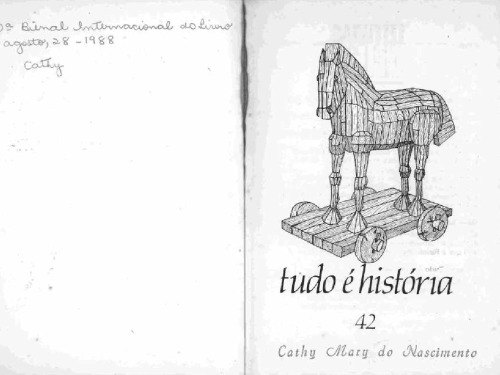 0ª Bienal Internacional do Livro
agosto, 28 - 1988
Cathy
tudo é história
42
Cathy Mary do Nascimento